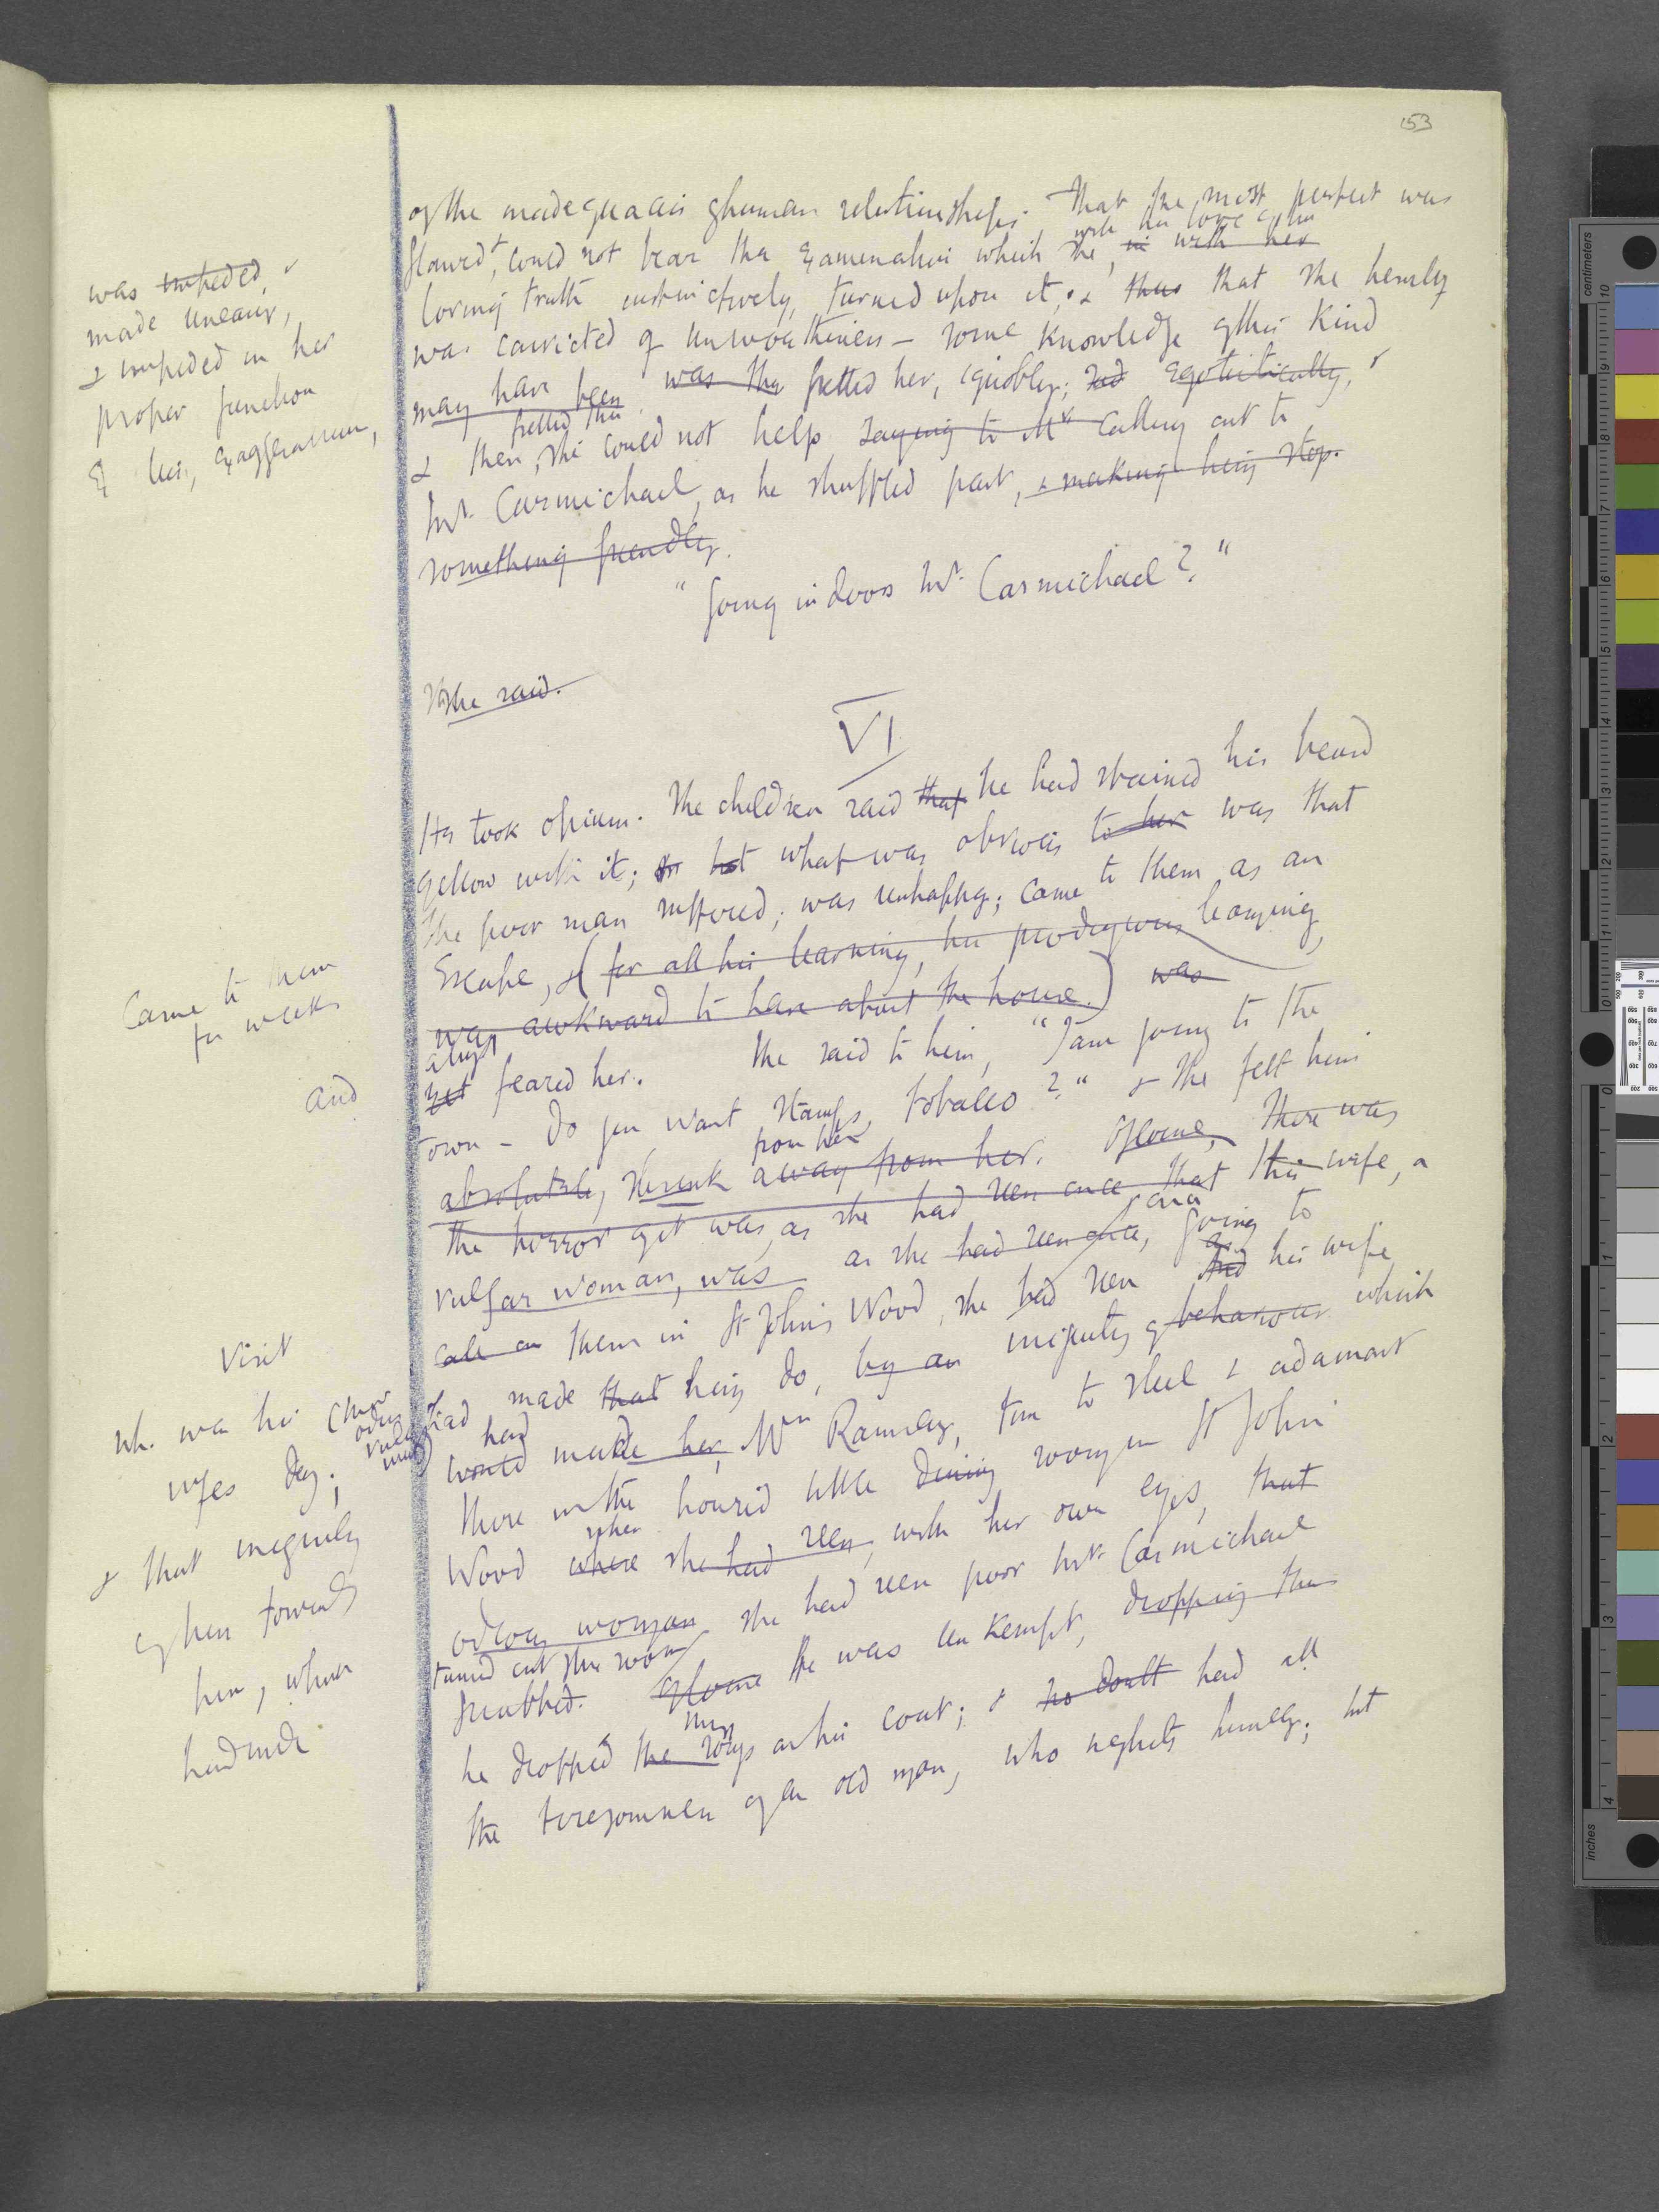 153
of the inadequacies of human relationships. That the most perfect was
with her love of him
flawed, & could not bear the examination which she, in with her
loving truth instinctively, turned upon it; & thus that she herself
was convicted of unworthiness - some knowledge of this kind
may have been was thus fretted her, ignobly; and egotistically, &
fretted thus
& then, she could not help saying to Mr calling out to
Mr. Carmichael, as he shuffled past, & making him stop.
something friendly.
"Going indoors Mr. Carmichael?"
she said.
was impeded, &
made uneasy,
& impeded in her
proper function
by lies, exaggerations,
VI
He took opium. The children said that he had stained his beard
yellow with it; but what was obvious to her was that
the poor man suffered; was unhappy; came to them as an
Escape, & (for all his learning, his prodigious learning,
was awkward to have about the house.) was
always
yet feared her. She said to him, "I am going to the
town - Do you want stamps, tobacco?" & she felt him
from her
absolutely, shrink away from her. Of course, there was
the horror of it was, as she had seen once that this wife, a
vulgar woman, was as she had seen once, going to
call on them in St John's Wood, she had seen as his wife
had made that him do, by an iniquity of behaviour which
had
would made her, Mrs Ramsay, turn to steel & adamant
there in the horrid little dining room in St John's
when
Wood where she had seen, with her own eyes, that
odious woman she had seen poor Mr Carmichael
turned out of the room
snubbed. Of course he was unkempt, dropping the
he dropped the things on his coat; & no doubt had all
the tiresomeness of an old man, who neglects himself; but
Came to them
for weeks
and
Visit
wh. was his
wifes day;
& that iniquity
of hers towards
him, which
had made